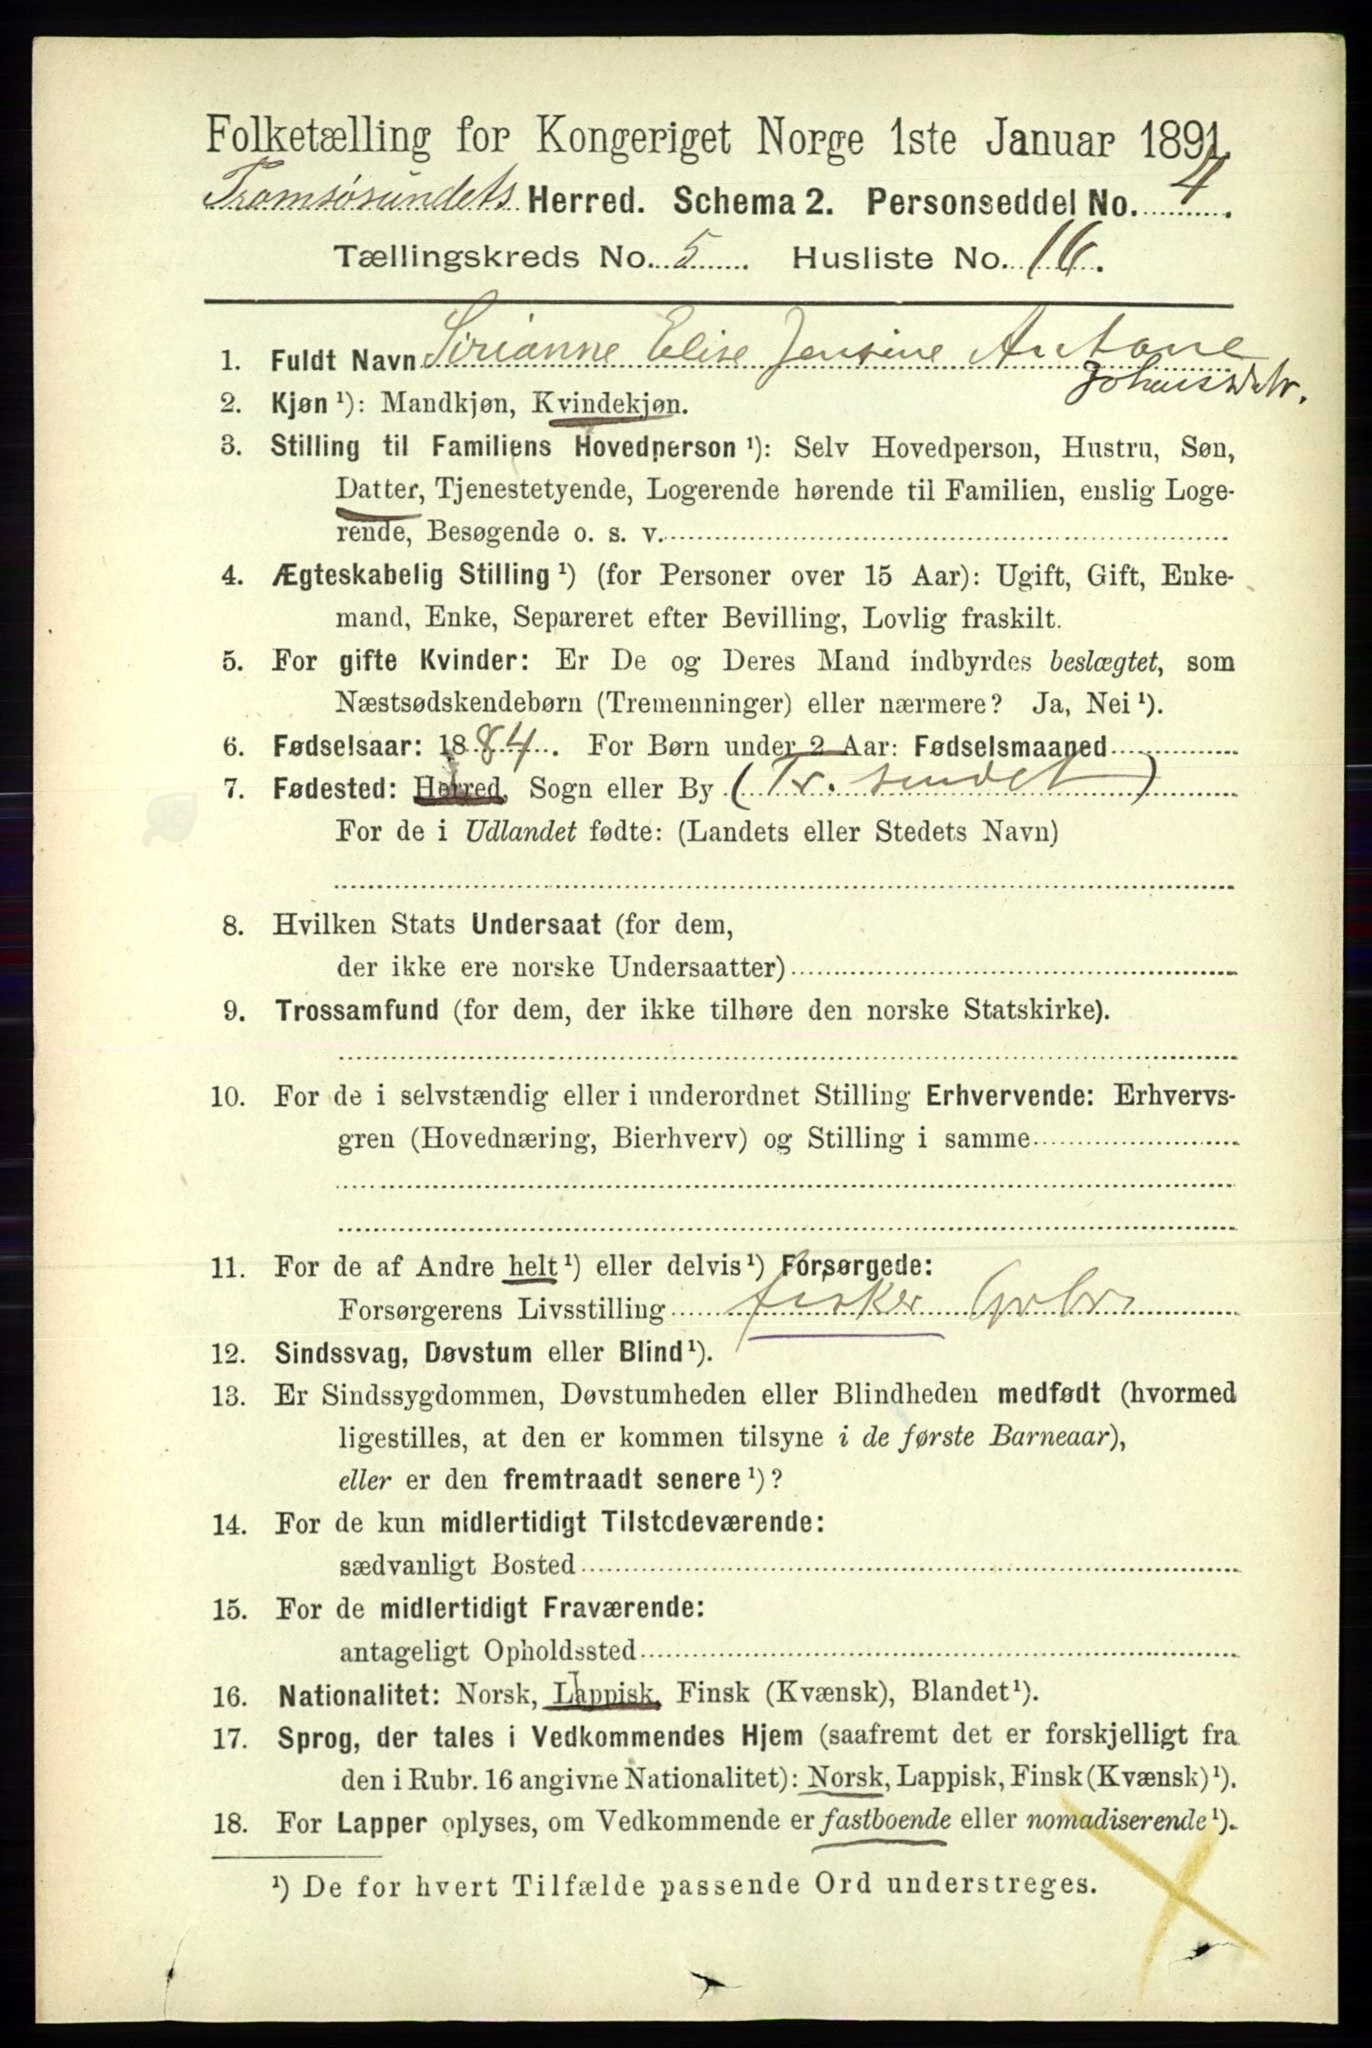 Folketælling for Kongeriget Norge 1ste Januar 1891.
Tromsøsundets Herred. Schema 2. Personseddel No. 4.
Tællingskreds No. 5. Husliste No. 16.
1. Fuldt Navn Sirianne Elise Jensine Antone
Johansdtr.
2. Kjøn ¹): Mandkjøn, Kvindekjøn.
3. Stilling til Familiens Hovedperson ¹): Selv Hovedperson, Hustru, Søn,
Datter, Tjenestetyende, Logerende hørende til Familien, enslig Loge-
rende, Besøgende o. s. v.
4. Ægteskabelig Stilling ¹) (for Personer over 15 Aar): Ugift, Gift, Enke-
mand, Enke, Separeret efter Bevilling, Lovlig fraskilt.
5. For gifte Kvinder: Er De og Deres Mand indbyrdes beslægtet, som
Næstsødskendebørn (Tremenninger) eller nærmere? Ja, Nei ¹).
6. Fødselsaar: 1884. For Børn under 2 Aar: Fødselsmaaned
7. Fødested: Herred, Sogn eller By (Tr. sundet)
For de i Udlandet fødte: (Landets eller Stedets Navn)
8. Hvilken Stats Undersaat (for dem,
der ikke ere norske Undersaatter)
9. Trossamfund (for dem, der ikke tilhøre den norske Statskirke).
10. For de i selvstændig eller i underordnet Stilling Erhvervende: Erhvervs-
gren (Hovednæring, Bierhverv) og Stilling i samme
11. For de af Andre helt ¹) eller delvis ¹) Forsørgede:
Forsørgerens Livsstilling fisker Grbr
12. Sindssvag, Døvstum eller Blind ¹).
13. Er Sindssygdommen, Døvstumheden eller Blindheden medfødt (hvormed
ligestilles, at den er kommen tilsyne i de første Barneaar),
eller er den fremtraadt senere ¹)?
14. For de kun midlertidigt Tilstedeværende:
sædvanligt Bosted
15. For de midlertidigt Fraværende:
antageligt Opholdssted
16. Nationalitet: Norsk, Lappisk, Finsk (Kvænsk), Blandet ¹).
17. Sprog, der tales i Vedkommendes Hjem (saafremt det er forskjelligt fra
den i Rubr. 16 angivne Nationalitet): Norsk, Lappisk, Finsk (Kvænsk) ¹).
18. For Lapper oplyses, om Vedkommende er fastboende eller nomadiserende ¹).
¹) De for hvert Tilfælde passende Ord understreges.